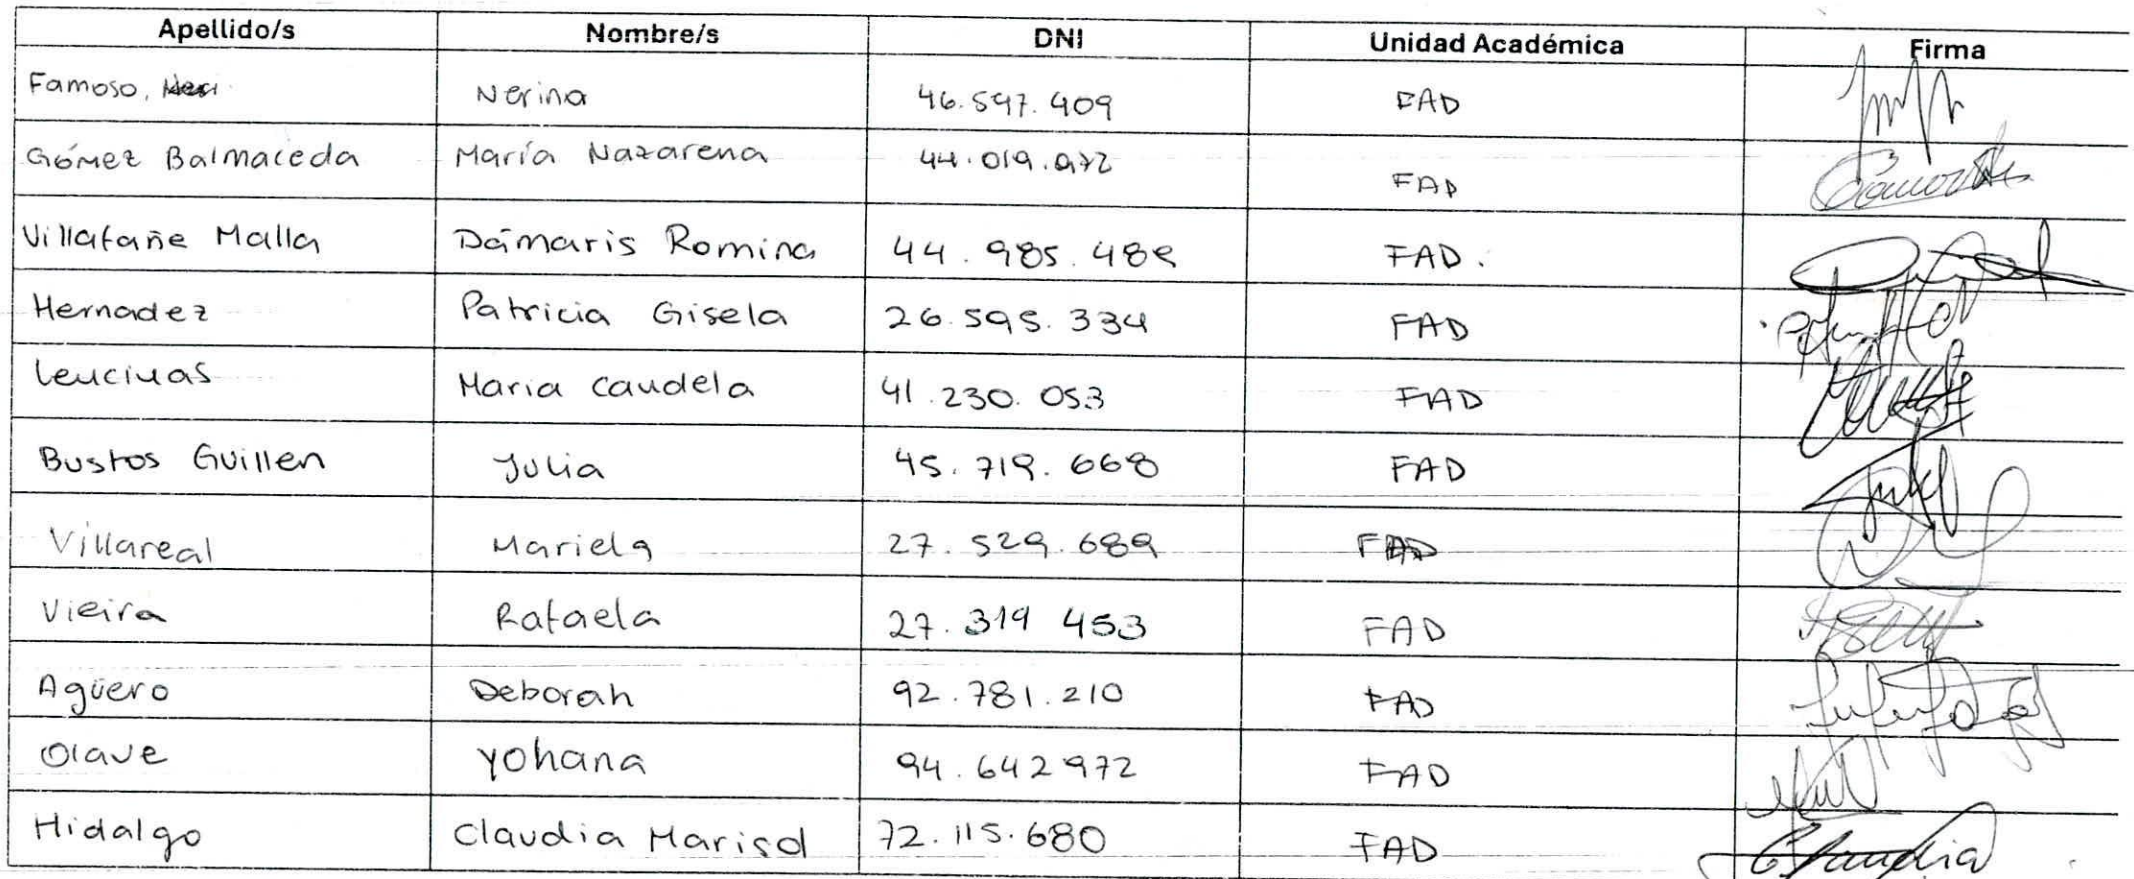 Apellido/s Nombre/s DNI Unidad Académica Firma
Famoso, Nerina 46.547.409 FAD
Gómez Balmaceda María Nazarena 44.019.972 FAD
Villafañe Malla Dámaris Romina 44.985.488 FAD.
Hernadez Patricia Gisela 26.595.334 FAD
Lencinas Maria Candela 41.230.053 FAD
Bustos Guillen Julia 45.719.668 FAD
Villareal Mariela 27.529.689 FAD
Vieira Rafaela 27.319 453 FAD
Agüero Deborah 92.781.210 FAD
Olave Yohana 94.642972 FAD
Hidalgo Claudia Marisol 72.115.680 FAD Claudia